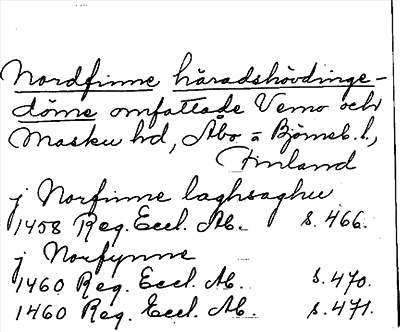 Nordfinne häradshövdinge-
döme omfattade Vemo och
Masku hd, Åbo = Björneb. l.,
Finland
j Norfinne laghsaghu
1458 Reg. Eccl. Ab. s. 466.
j Norfynne
1460 Reg. Eccl. Ab. s. 470.
1460 Reg. Eccl. Ab. s. 471.